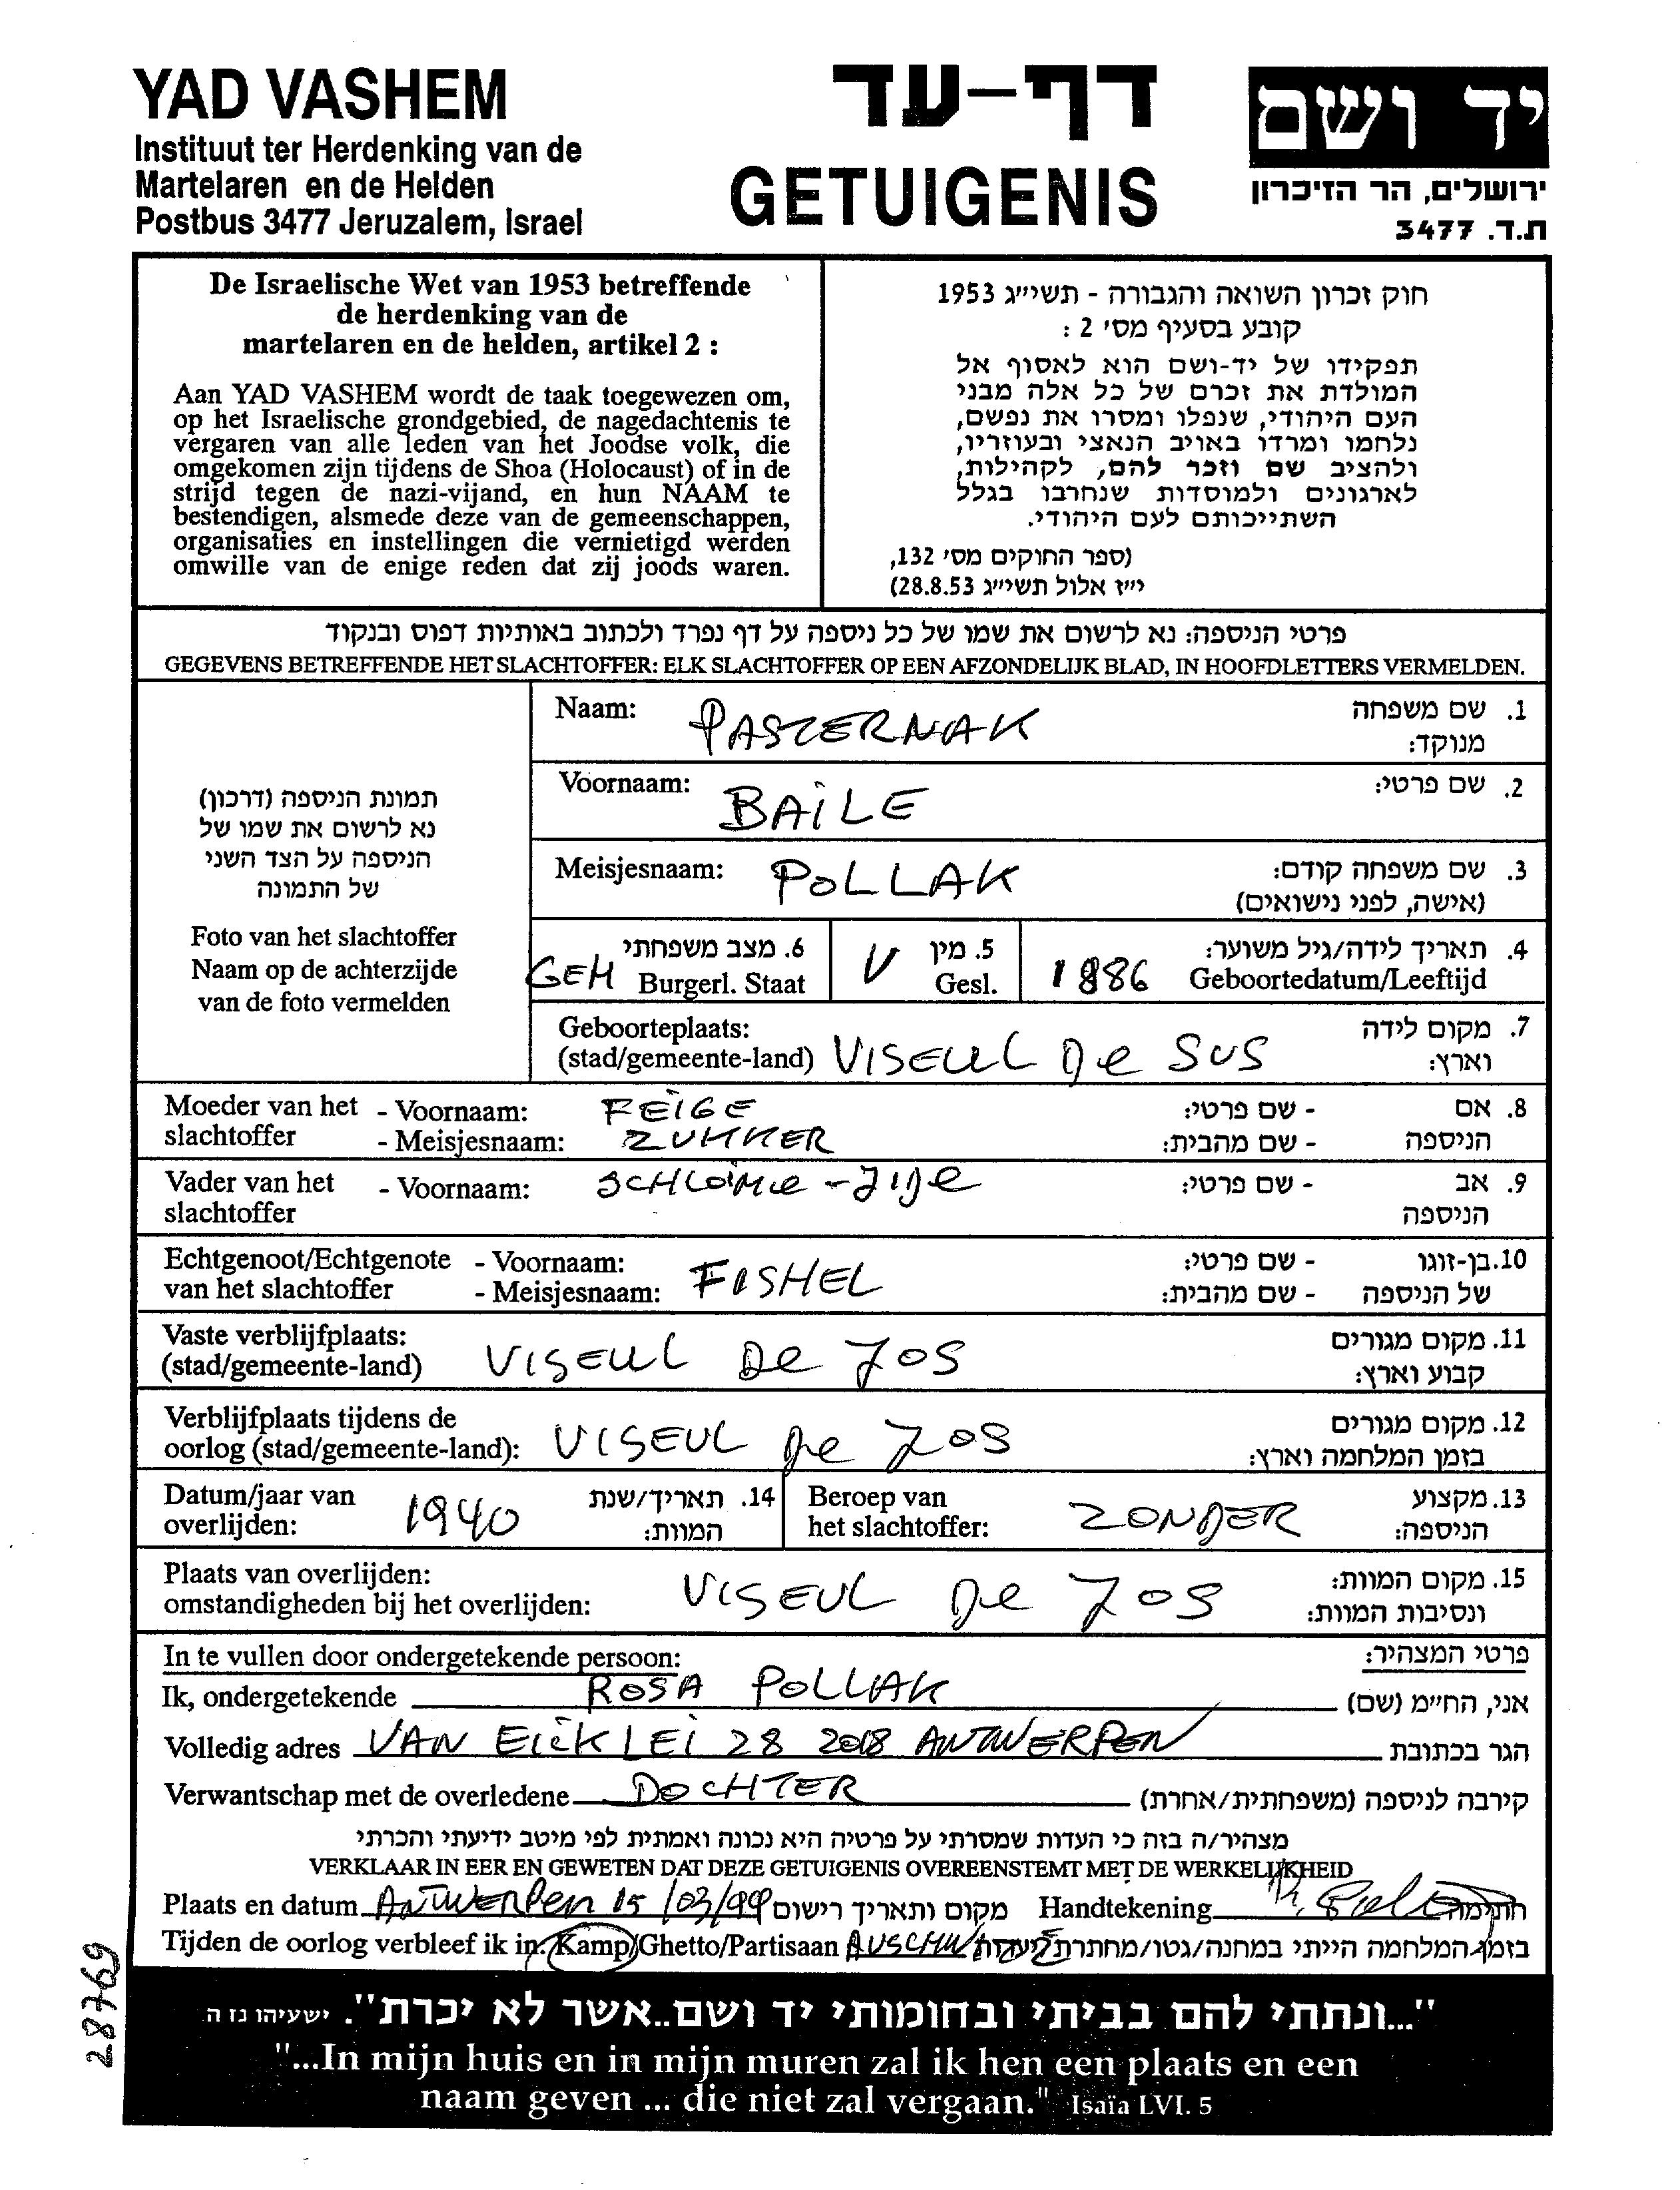 YAD VASHEM
Instituut ter Herdenking van de
Martelaren en de Helden
Postbus 3477 Jeruzalem, Israel
דף-עד
GETUIGENIS
יד ושם
ירושלים, הר הזיכרון
ת.ד. 3477
De Israelische Wet van 1953 betreffende
de herdenking van de
martelaren en de helden, artikel 2 :
Aan YAD VASHEM wordt de taak toegewezen om,
op het Israelische grondgebied, de nagedachtenis te
vergaren van alle leden van het Joodse volk, die
omgekomen zijn tijdens de Shoa (Holocaust) of in de
strijd tegen de nazi-vijand, en hun NAAM te
bestendigen, alsmede deze van de gemeenschappen,
organisaties en instellingen die vernietigd werden
omwille van de enige reden dat zij joods waren.
חוק זכרון השואה והגבורה - תשי״ג 1953
קובע בסעיף מס׳ 2 :
תפקידו של יד-ושם הוא לאסוף אל
המולדת את זכרם של כל אלה מבני
העם היהודי, שנפלו ומסרו את נפשם,
נלחמו ומרדו באויב הנאצי ובעוזריו,
ולהציב שם וזכר להם, לקהילות,
לארגונים ולמוסדות שנחרבו בגלל
השתייכותם לעם היהודי.
(ספר החוקים מס׳ 132,
י״ז אלול תשי״ג 28.8.53)
פרטי הניספה: נא לרשום את שמו של כל ניספה על דף נפרד ולכתוב באותיות דפוס ובנקוד
GEGEVENS BETREFFENDE HET SLACHTOFFER: ELK SLACHTOFFER OP EEN AFZONDELIJK BLAD, IN HOOFDLETTERS VERMELDEN.
תמונת הניספה (דרכון)
נא לרשום את שמו של
הניספה על הצד השני
של התמונה
Foto van het slachtoffer
Naam op de achterzijde
van de foto vermelden
Naam: PASZERNAK 1. שם משפחה
מנוקד:
Voornaam: BAILE 2. שם פרטי:
Meisjesnaam: POLLAK 3. שם משפחה קודם:
(אישה, לפני נישואים)
GEH 6. מצב משפחתי V 5. מין 1886 4. תאריך לידה/גיל משוער:
Burgerl. Staat Gesl. Geboortedatum/Leeftijd
Geboorteplaats: 7. מקום לידה
(stad/gemeente-land) VISEUL De SUS וארץ:
Moeder van het - Voornaam: FEIGE - שם פרטי: 8. אם
slachtoffer - Meisjesnaam: ZUKKER - שם מהבית: הניספה
Vader van het - Voornaam: SCHLOIME - Jije - שם פרטי: 9. אב
slachtoffer הניספה
Echtgenoot/Echtgenote - Voornaam: FISHEL - שם פרטי: 10. בן-זוגו
van het slachtoffer - Meisjesnaam: - שם מהבית: של הניספה
Vaste verblijfplaats: 11. מקום מגורים
(stad/gemeente-land) VISEUL De JOS קבוע וארץ:
Verblijfplaats tijdens de 12. מקום מגורים
oorlog (stad/gemeente-land): VISEUL De JOS בזמן המלחמה וארץ:
Datum/jaar van 1940 14. תאריך/שנת Beroep van ZONDER 13. מקצוע
overlijden: המוות: het slachtoffer: הניספה:
Plaats van overlijden: VISEUL De JOS 15. מקום המוות:
omstandigheden bij het overlijden: ונסיבות המוות:
In te vullen door ondergetekende persoon: פרטי המצהיר:
Ik, ondergetekende ROSA POLLAK אני, החי״מ (שם)
Volledig adres VAN EICK LEI 28 2018 ANTWERPEN הגר בכתובת
Verwantschap met de overledene DOCHTER קירבה לניספה (משפחתית/אחרת)
מצהיר/ה בזה כי העדות שמסרתי על פרטיה היא נכונה ואמתית לפי מיטב ידיעתי והכרתי
VERKLAAR IN EER EN GEWETEN DAT DEZE GETUIGENIS OVEREENSTEMT MET DE WERKELIJKHEID
Plaats en datum ANTWERPEN 15/03/99 מקום ותאריך רישום Handtekening חתימה
Tijden de oorlog verbleef ik in: Kamp/Ghetto/Partisaan AUSCHW בזמן המלחמה הייתי במחנה/גטו/מחתרת
28769
"...ונתתי להם בביתי ובחומותי יד ושם..אשר לא יכרת". ישעיהו נז ה
"...In mijn huis en in mijn muren zal ik hen een plaats en een
naam geven ... die niet zal vergaan." Isaïa LVI. 5